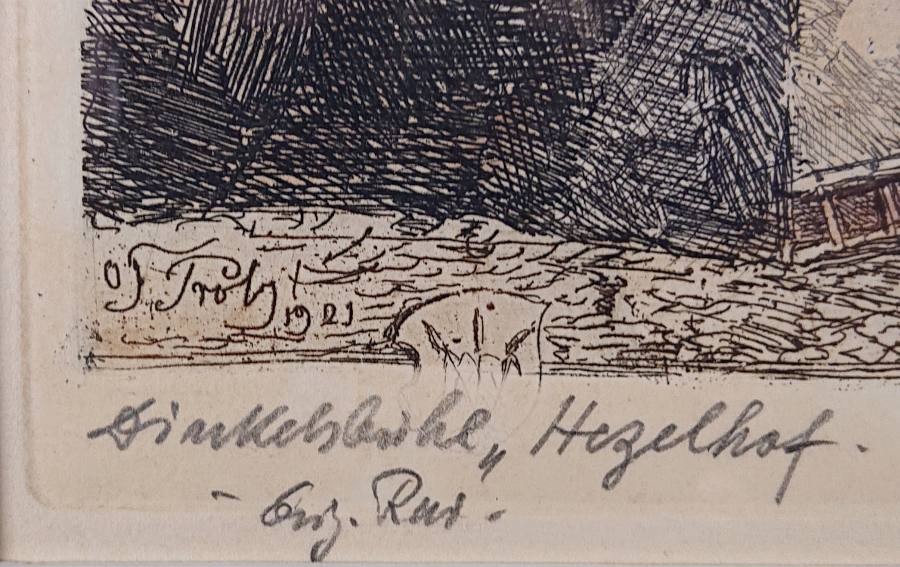 OJ Tröltz 1921
Dinkelsbühl, „Hezelhof.
- Orig. Rad. -